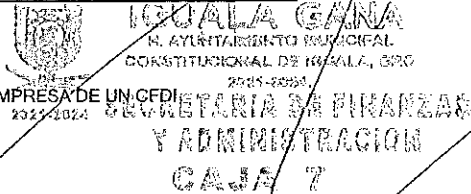 IGUALA GANA
H. AYUNTAMIENTO MUNICIPAL
CONSTITUCIONAL DE IGUALA, GRO
2021-2024
MPRESA DE UN CFDI
2021-2024
SECRETARIA DE FINANZAS
Y ADMINISTRACION
CAJA 7